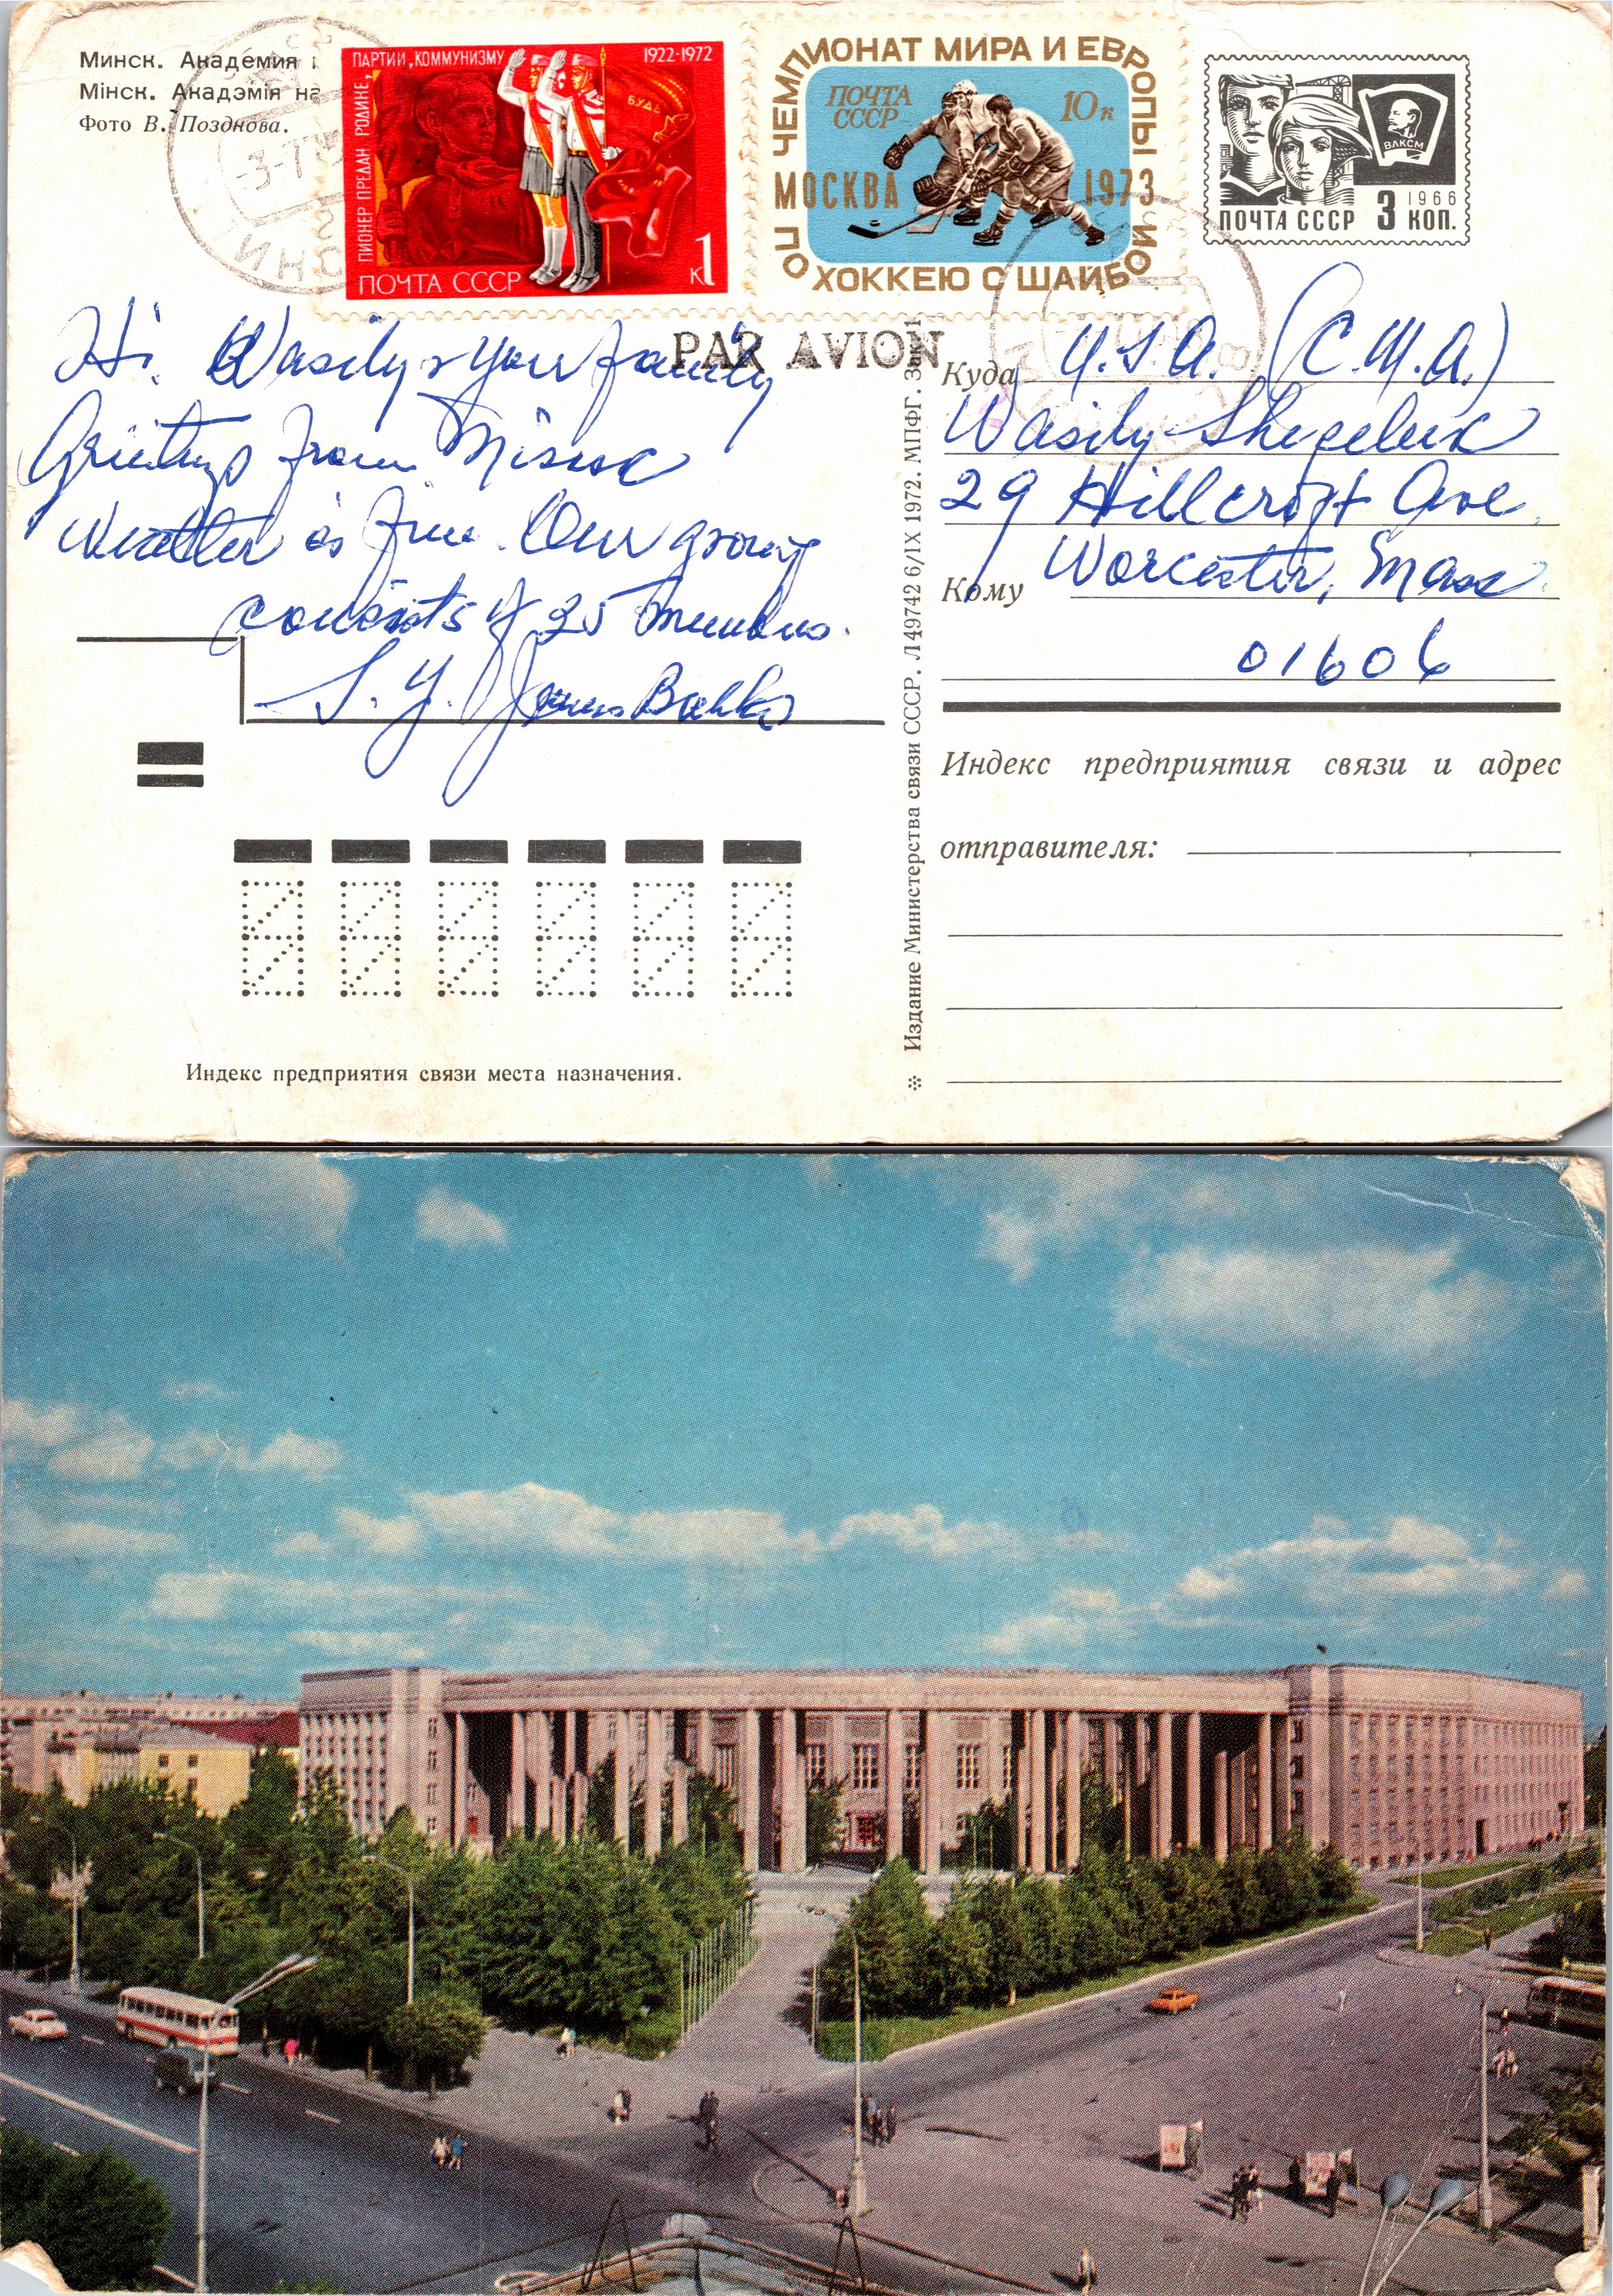 Минск. Академия
Мінск. Акадэмія на
Фото В. Позднова.
ПИОНЕР ПРЕДАН РОДИНЕ, ПАРТИИ, КОММУНИЗМУ 1922-1972
БУДЬ
ПОЧТА СССР 1 К
ЧЕМПИОНАТ МИРА И ЕВРОПЫ
ПО ХОККЕЮ С ШАЙБОЙ
ПОЧТА
СССР
10 к
МОСКВА 1973
ВЛКСМ
1966
ПОЧТА СССР 3 КОП.
PAR AVION
Hi. Wasily & your family
Greetings from Minsk
Weather is fine. Our group
consists of 25 members.
S. Y. James
Куда U.S.A. (С.Ш.А.)
Wasily Shepeluk
29 Hillcroft Ave.
Кому Worcester, Mass.
01606
Индекс предприятия связи и адрес
отправителя:
Издание Министерства связи СССР. Л 49742 6/IX 1972. МПФГ. Зак 1
Индекс предприятия связи места назначения.